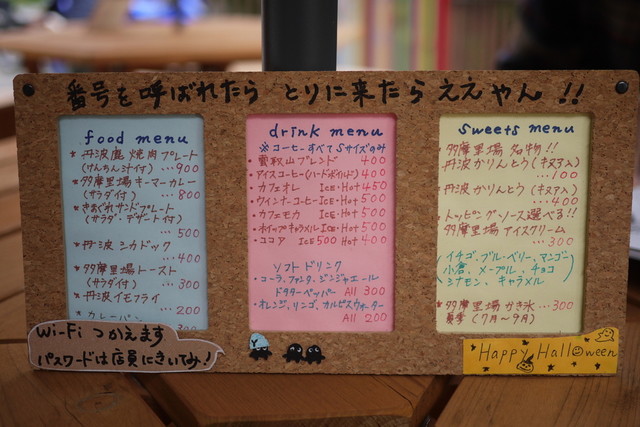 番号を呼ばれたら とりに来たら ええやん !!
food menu
* 丹波鹿 焼肉プレート
(けんちん汁付) … 900
* 多摩里場キーマーカレー
(サラダ付) … 800
(サラダ・デザート付)
… 500
* 丹波 シカドック
… 400
* 多摩里場トースト
(サラダ付) … 300
* 丹波イモフライ
… 200
カレーパン
drink menu
※コーヒーすべてSサイズのみ
ブレンド 400
アイスコーヒー 400
・カフェオレ ICE・Hot 450
・ウインナーコーヒー ICE・Hot 500
・カフェモカ ICE・Hot 500
・ホイップキャラメル ICE・Hot 500
・ココア ICE 500 Hot 400
ソフトドリンク
・コーラ、ファンタ、ジンジャエール
ドクターペッパー All 300
・オレンジ、リンゴ、カルピスウォーター
All 200
sweets menu
* 多摩里場 名物!!
丹波かりんとう
… 100
丹波かりんとう
… 400
* トッピングソース選べる!!
多摩里場アイスクリーム
… 300
(イチゴ、ブルーベリー、マンゴー
小倉、メープル、チョコ
シナモン、キャラメル)
* 多摩里場 かき氷 … 300
夏季 (7月〜9月)
Wi-Fi つかえます
パスワードは店員にきいてみ!
Y
Happy Halloween